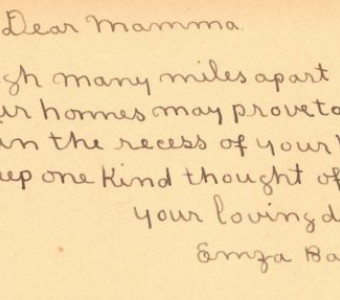 Dear Mamma.
gh many miles apart
ur homes may prove to
in the recess of your
eep one kind thought of
your loving d
Emza Ba